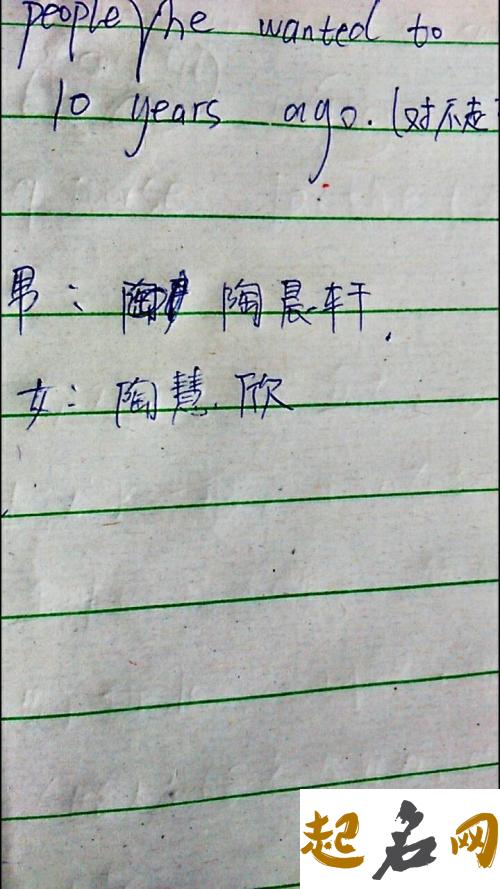 people he wanted to
10 years ago. (对不起
男: 陶晨轩
女: 陶慧欣
起名网